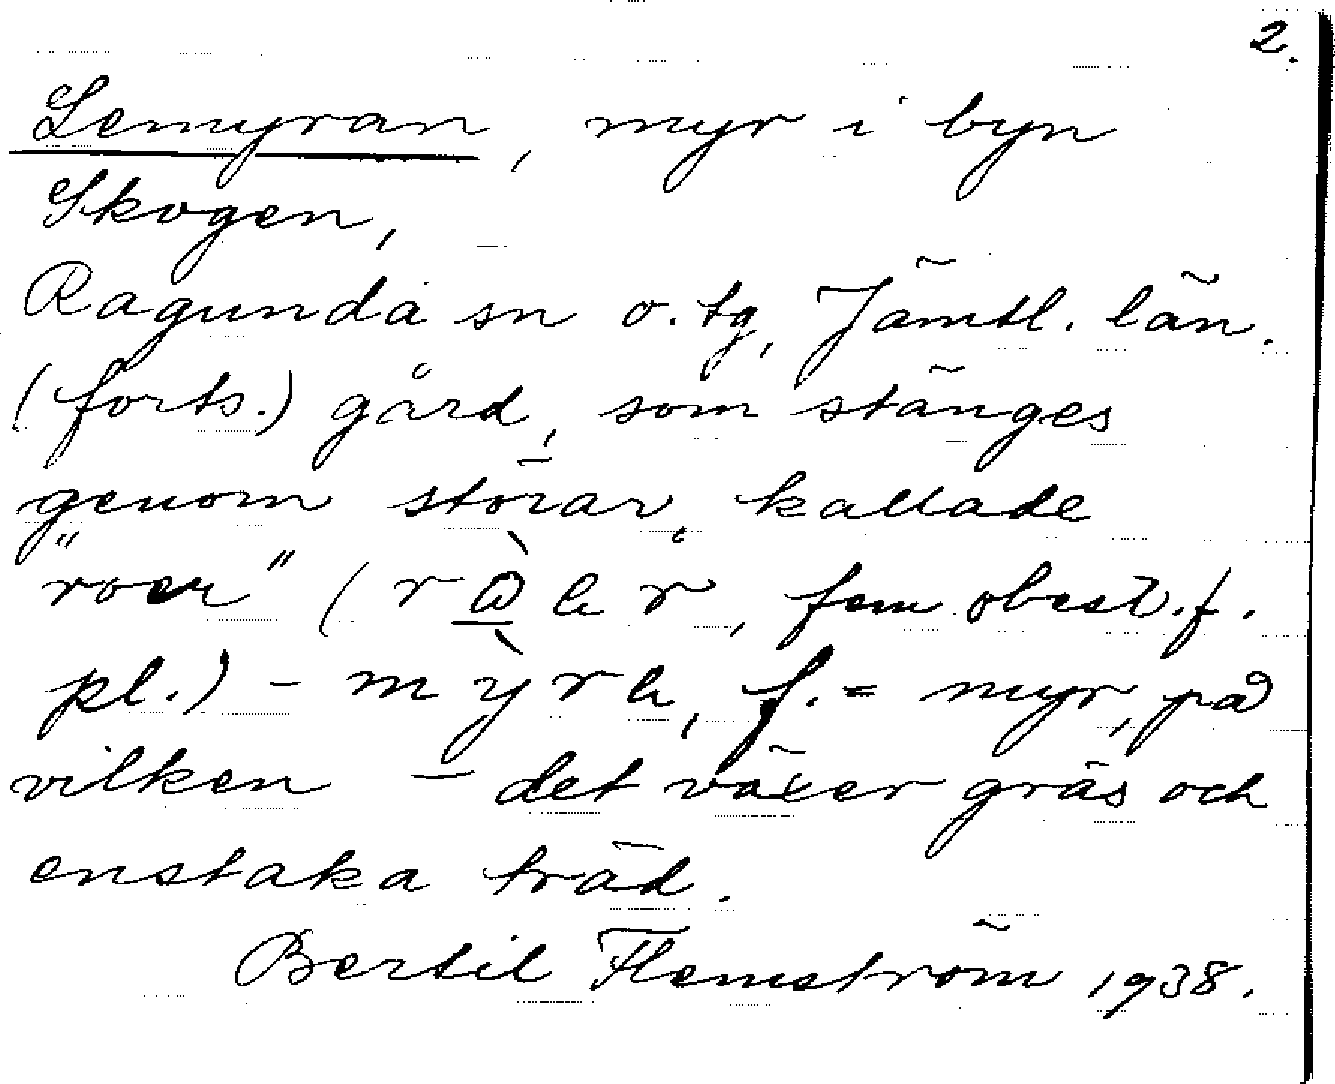 2.
Lemyran, myr i byn
Skogen,
Ragunda sn o. tg, Jämtl. län.
(forts.) gård, som stänges
genom störar, kallade
"roer" ( fem. obest. f.
pl.) – f. = myr, på
vilken – det växer gräs och
enstaka träd.
Bertil Flemström 1938.